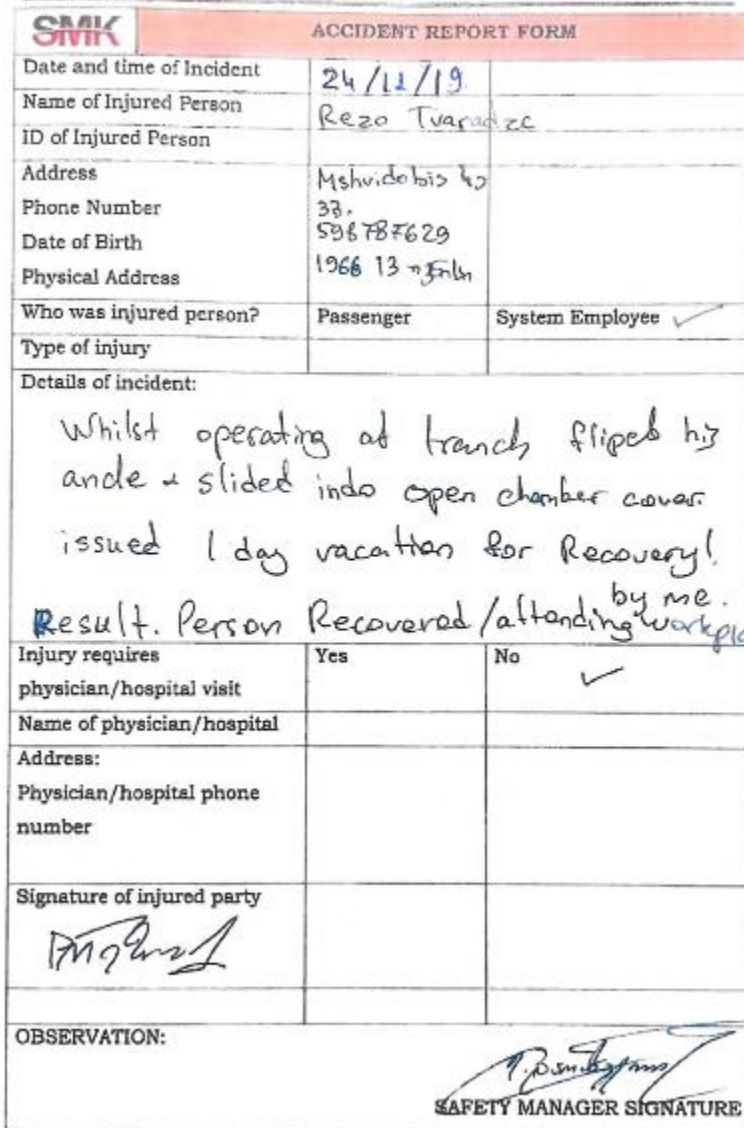 SMK ACCIDENT REPORT FORM
Date and time of Incident 24/11/19
Name of Injured Person Rezo Tvaradze
ID of Injured Person
Address Mshvidobis
Phone Number 33.
Date of Birth 598787629
Physical Address 1966 13
Who was injured person? Passenger System Employee ✓
Type of injury
Details of incident:
Whilst operating at tranch fliped his
ancle + slided indo open chamber cover.
issued 1 day vacation for Recovery!
by me.
Result. Person Recovered/attending workpla
Injury requires Yes No
physician/hospital visit ✓
Name of physician/hospital
Address:
Physician/hospital phone
number
Signature of injured party
OBSERVATION:
SAFETY MANAGER SIGNATURE